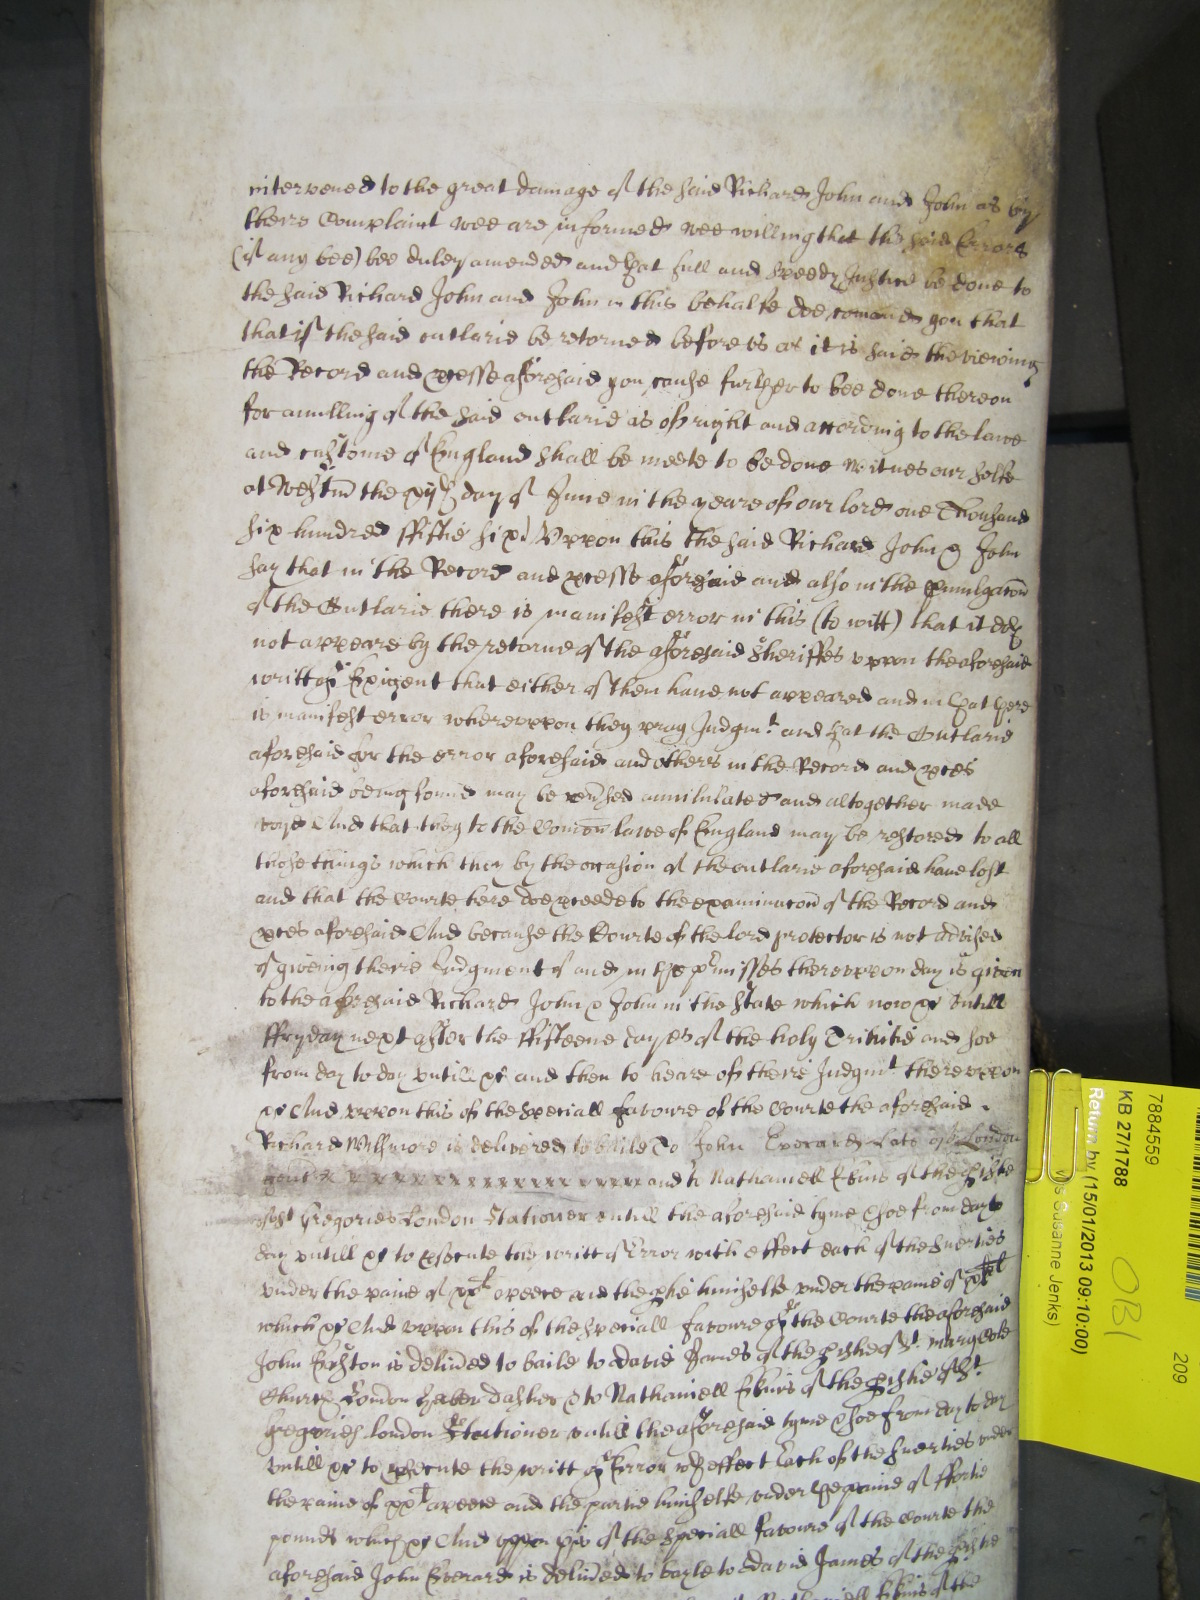 intervened to the great damage of the said Richard John and John as by
theire Complaint wee are informed wee willing that the said Errors
(if any bee) bee duley amended and that full and speedy Justice be done to
the said Richard John and John in this behalfe doe comand you that
that if the said outlarie be retorned before us as it is said the viewing
the Record and pcesse aforesaid you cause further to bee done thereon
for anulling of the said outlarie as of right and according to the lawe
and custome of England shall be meete to be done witnes our selfe
at Westm the day of June in the yeare of our lord one Thousand
six hundred fiftie six Uppon this the said Richard John & John
say that in the Record and pcesse aforesaid and also in the pmulgacon
of the Outlarie there is manifest error in this (to witt) that it doth
not appeare by the retorne of the aforesaid Sheriffes uppon the aforesaid
writt of Exigent that either of them have not appeared and in that there
is manifest error whereuppon they pray Judgmt and that the Outlarie
aforesaid for the error aforesaid and others in the Record and pces
aforesaid being found may be revsed annihilated and altogether made
voyd And that they to the Comon lawe of England may be restored to all
those things which they by the occasion of the outlarie aforesaid have lost
and that the Courte here doe pceede to the examinacon of the Record and
pces aforesaid And because the Courte of the lord protector is not advised
of giveing theire Judgment of and in the pmisses thereuppon day is given
to the aforesaid Richard John & John in the State which now &c untill
ffryday next after the ffifteene dayes of the holy Trinitie and soe
from day to day untill &c and then to heare of theire Judgmt thereuppon
&c And uppon this of the speciall favoure of the Courte the aforesaid
Richard is delivered to baile To John Everard Late of London
gent x x x x x x x x x x x x x x x x x and to Nathaniell Ekins of the pishe
of St Gregories London Stationer untill the aforesaid tyme & soe from day to
day untill &c to psecute the writt of Error with effect each of the suerties
under the paine of xxl apeece and the ptie himselfe under the paine of xll
which &c And uppon this of the speciall favoure of the Courte the aforesaid
John is delivred to baile to David James of the pishe of St
Church London Haberdasher & to Nathaniell Ekins of the pishe of St
Gregories London Stationer untill the aforesaid tyme & soe from day to day
untill &c to psecute the writt of Error wth effect Each of the suerties under
the paine of xxl apeece and the partie himselfe under the paine of ffortie
pounds which &c And uppon this of the speciall favoure of the Courte the
aforesaid John Everard is delivred to bayle to David James of the pishe
Nathaniell Ekins of the
7884559
KB 27/1788
Return by (15/01/2013 09:10:00)
Susanne Jenks)
OBI
209